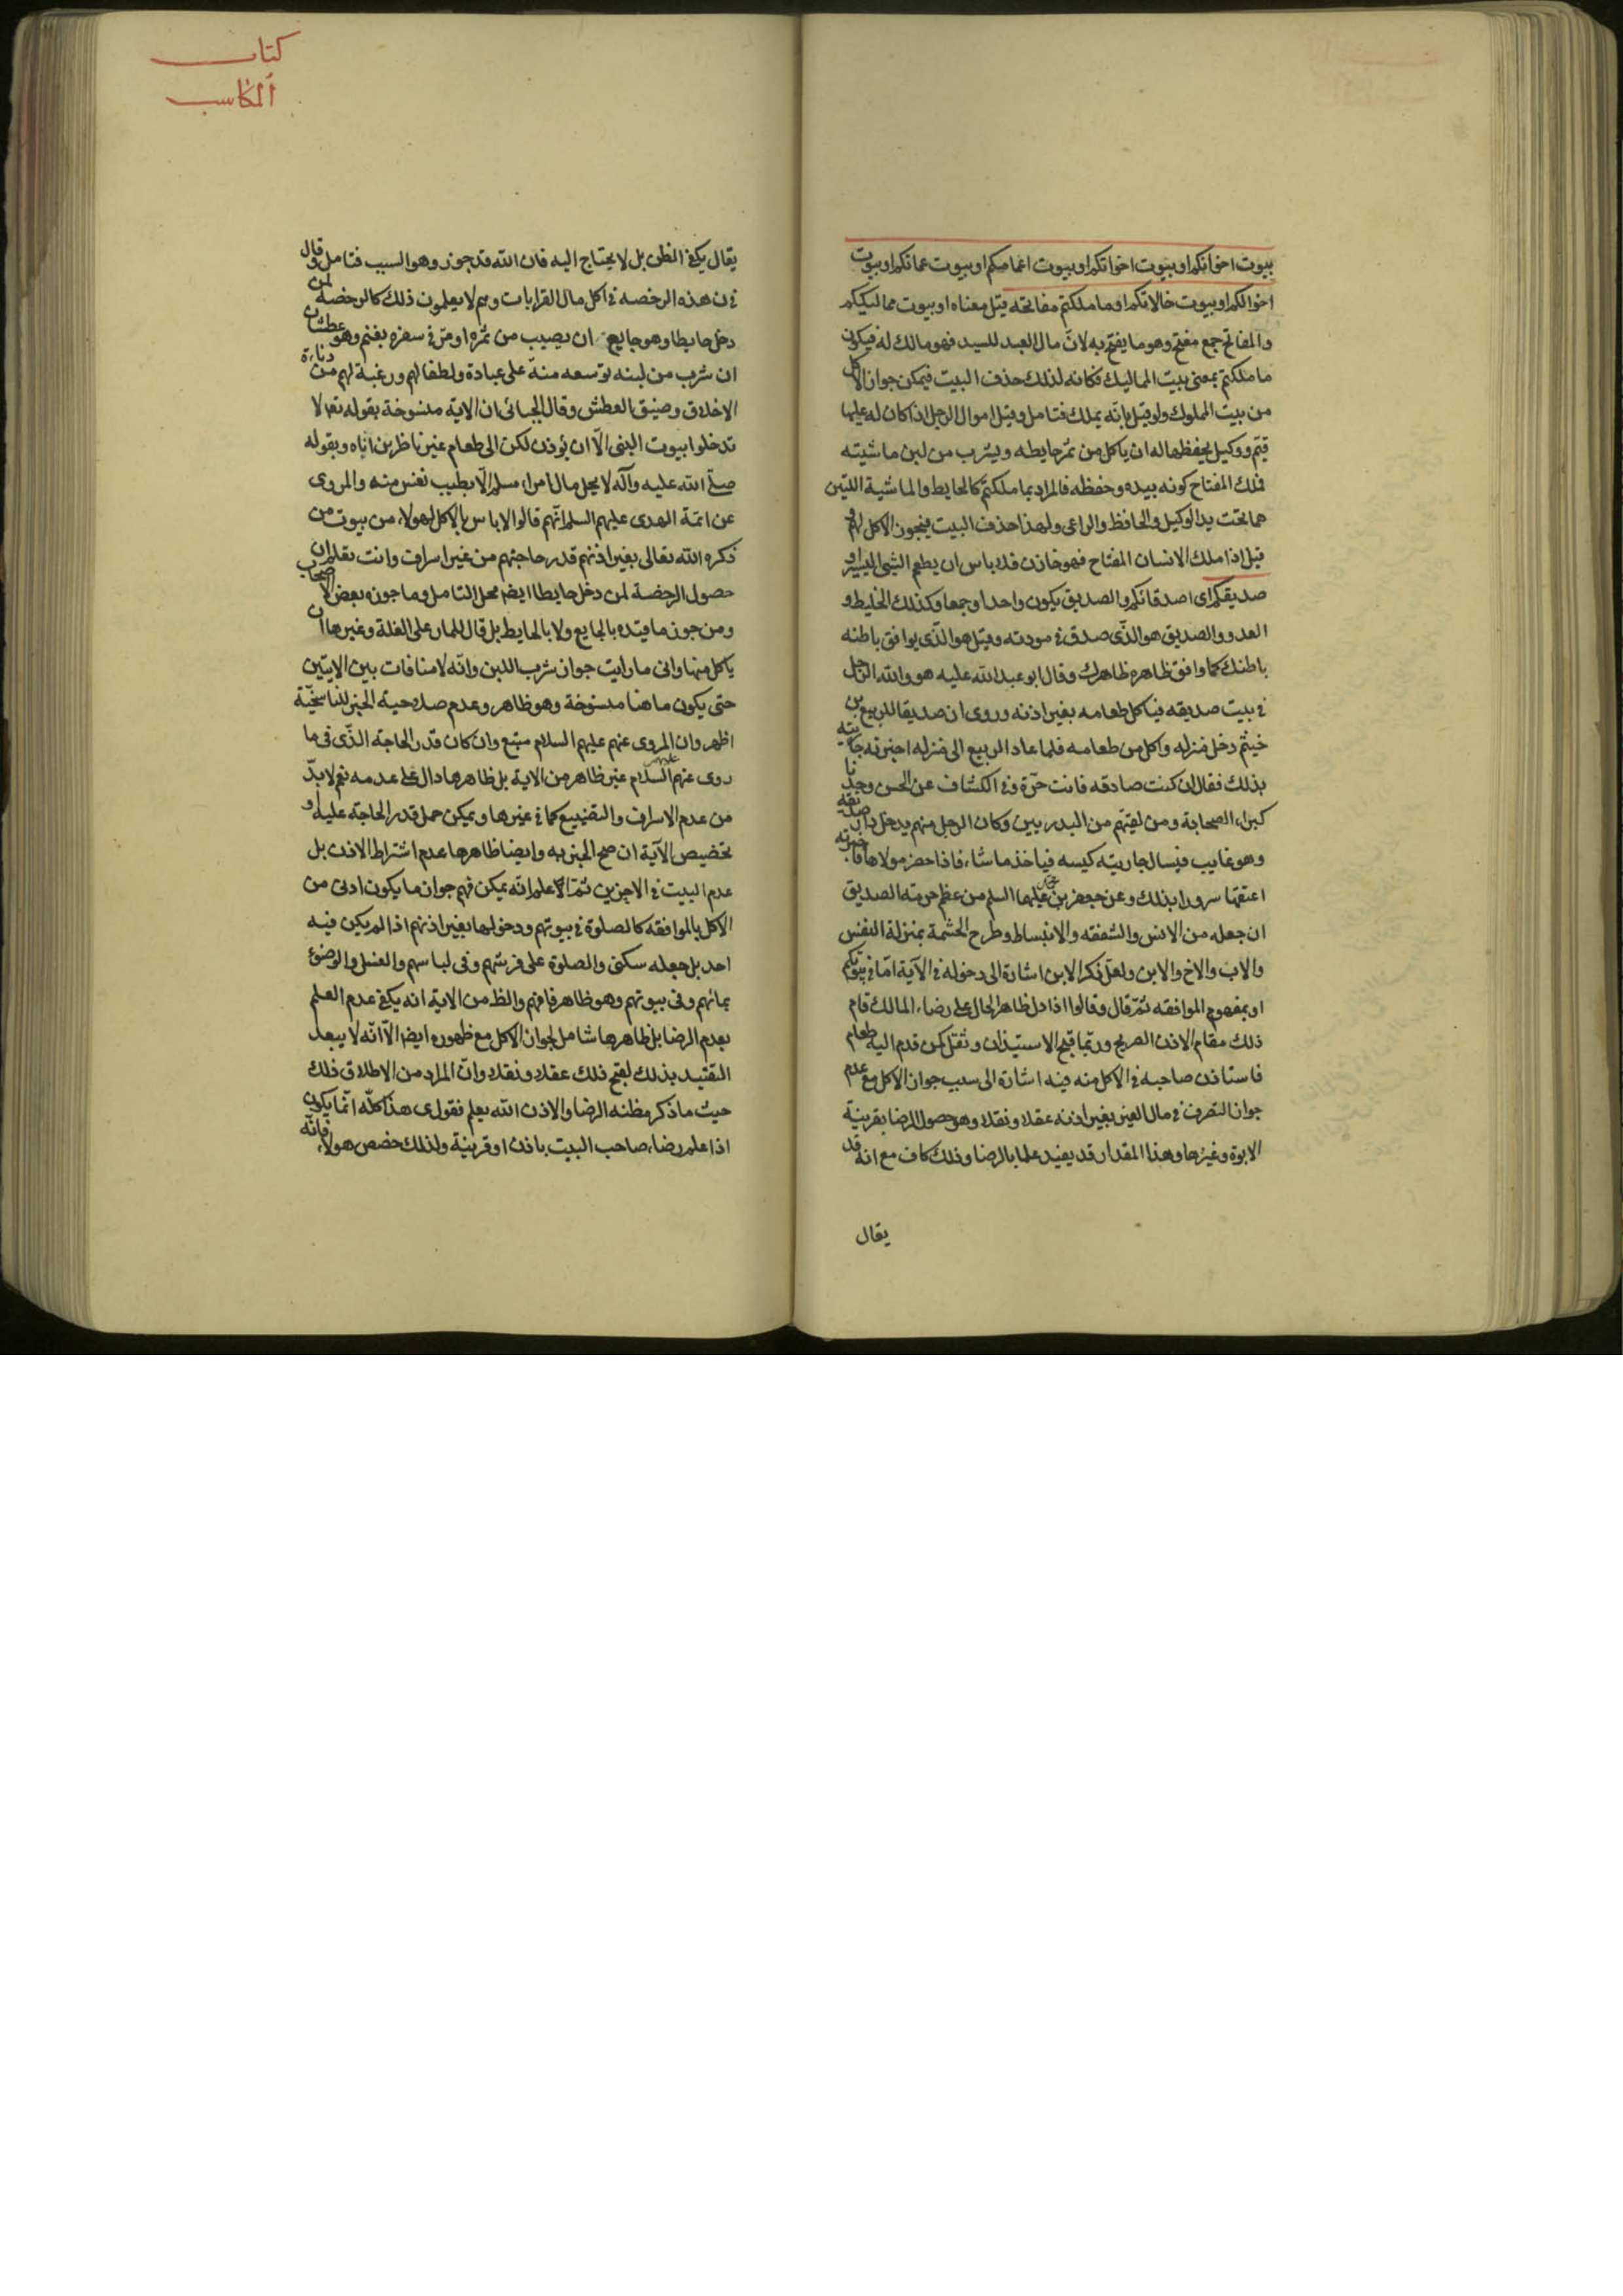 بيوت اخوانكم او بيوت اخواتكم او بيوت اعمامكم او بيوت عماتكم او بيوت
اخوالكم او بيوت خالاتكم او ما ملكتم مفاتحه قيل معناه او بيوت مماليككم
والمفاتح جمع مفتح وهو ما يفتح به لان مال العبد للسيد فهو مالك له فيكون
ما ملكتم بمعنى بيت المماليك فكانه لذلك حذف البيت فيمكن جواز الاكل
من بيت المملوك ولو قيل بانه يملك فتامل وقيل اموال الرجل اذا كان له عليها
قيّم ووكيل يحفظها له ان ياكل من ثمر حايطه ويشرب من لبن ماشيته
فملك المفتاح كونه بيده وحفظه فالمراد بما ملكتم كالحايط والماشية اللتين
هما تحت يد الوكيل والحافظ والراعى ولهذا حذف البيت فيجوز الاكل لهم و
قيل اذا ملك الانسان المفتاح فهو خازن فلا باس ان يطعم الشئ اليسير او
صديقكم اى اصدقائكم والصديق يكون واحدا وجمعا وكذلك الخليط و
العدو والصديق هو الّذى صدق فى مودته وقيل هو الّذى يوافق باطنه
باطنك كما وافق ظاهره ظاهرك وقال ابو عبد الله عليه هو والله الرجل
فى بيت صديقه فياكل طعامه بغير اذنه وروى ان صديقا للربيع بن
خيثم دخل منزله واكل من طعامه فلما عاد الربيع الى منزله اخبرته جاريته
بذلك فقال ان كنت صادقه فانت حرّة وفى الكشاف عن الحسن وجدنا
كبراء الصحابة ومن لقيهم من البدريين وكان الرجل منهم يدخل دار صديقه
وهو غايب فيسال جاريته كيسه فياخذ ما شاء فاذا حضر مولاها فاخبرته
اعتقها سرورا بذلك وعن جعفر بن محمد عليهما السلم من عظم حرمة الصديق
ان جعله من الانس والشفقه والانبساط وطرح الحشمة بمنزلة النفس
والاب والاخ والابن ولعل ذكر الابن اشارة الى دخوله فى الآية امّا فى بيوتكم
او بمفهوم الموافقه ثمّ قال وقالوا اذا دل ظاهر الحال على رضاء المالك قام
ذلك مقام الاذن الصريح وربّما قبح الاستيذان وثقل كمن قدم اليه طعام
فاستاذن صاحبه فى الاكل منه فيه اشارة الى سبب جواز الاكل مع عدم
جواز التصرف فى مال الغير بغير اذنه عقلا ونقلا وهو حصول الرضا بقرينة
الابوة وغيرها وهذا المقدار قد يفيد علما بالرضا وذلك كاف مع انه قد
يقال
كتاب
المكاسب
يقال يكفى الظن بل لا يحتاج اليه فان الله قد جوز وهو السبب فتامل وقال
فى ن هذه الرخصه فى اكل مال القرابات وهم لا يعلمون ذلك كالرخصه لمن
دخل حايطا وهو جايع ان يصيب من ثمره او مرّ فى سفره بغنم وهو عطشان
ان شرب من لبنه توسعه منة على عباده ولطفا لهم ورغبة لهم من دناءة
الاخلاق وضيق العطش وقال الجبائى ان الاية منسوخة بقوله تعالا
تدخلوا بيوت النبى الّا ان يؤذن لكم الى طعام غير ناظرين اناه وبقوله
صلّى الله عليه وآله لا يحل مال امرء مسلم الّا بطيب نفس منه والمروى
عن ائمة الهدى عليهم السلم انّهم قالوا لا باس بالاكل لهولاء من بيوت من
ذكره الله تعالى بغير اذنهم قدر حاجتهم من غير اسراف وانت تعلم ان
حصول الرخصة لمن دخل حايطا ايضا محل التامل وما جوزه بعض الاصحاب
ومن جوز ما قيده بالجايع ولا بالحايط بل قال للمار على الغلة وغيرها ان
ياكل منها وانى ما رايت جواز شرب اللبن وانّه لا منافات بين الايتين
حتى يكون ما هنا منسوخة وهو ظاهر وعدم صلاحية الخبر للناسخيّة
اظهر وان المروى عنهم عليهم السلام متبع وان كان قدر الحاجة الّذى فى ما
روى عنهم عليهم السلام غير ظاهر من الاية بل ظاهرها دال على عدمه نعم لا بدّ
من عدم الاسراف والتضييع كما فى غيرها ويمكن حمل قدر الحاجة عليه او
تخصيص الآية ان صح الخبر به وايضا ظاهرها عدم اشتراط الاذن بل
عدم البيت فى الاخرين ثمّ اعلم انّه يمكن فهم جواز ما يكون ادنى من
الاكل بالموافقه كالصلوة فى بيوتهم ودخولها بغير اذنهم اذا لم يكن فيه
احد بل جعله سكنى والصلوة على فرشهم وفى لباسهم والغسل والوضوء
بمائهم وفى بيوتهم وهو ظاهر فافهم والظ من الاية انه يكفى عدم العلم
بعدم الرضا بل ظاهرها شامل لجواز الاكل مع ظهوره ايضا الّا انّه لا يبعد
التقييد بذلك لقبح ذلك عقلا ونقلا وانّ المراد من الاطلاق ذلك
حيث ما ذكر مظنه الرضا والاذن الله يعلم فقول ى هذا كلّه انّما يكون
اذا علم رضاء صاحب البيت باذن او قرينة ولذلك خصص هولاء فانّه